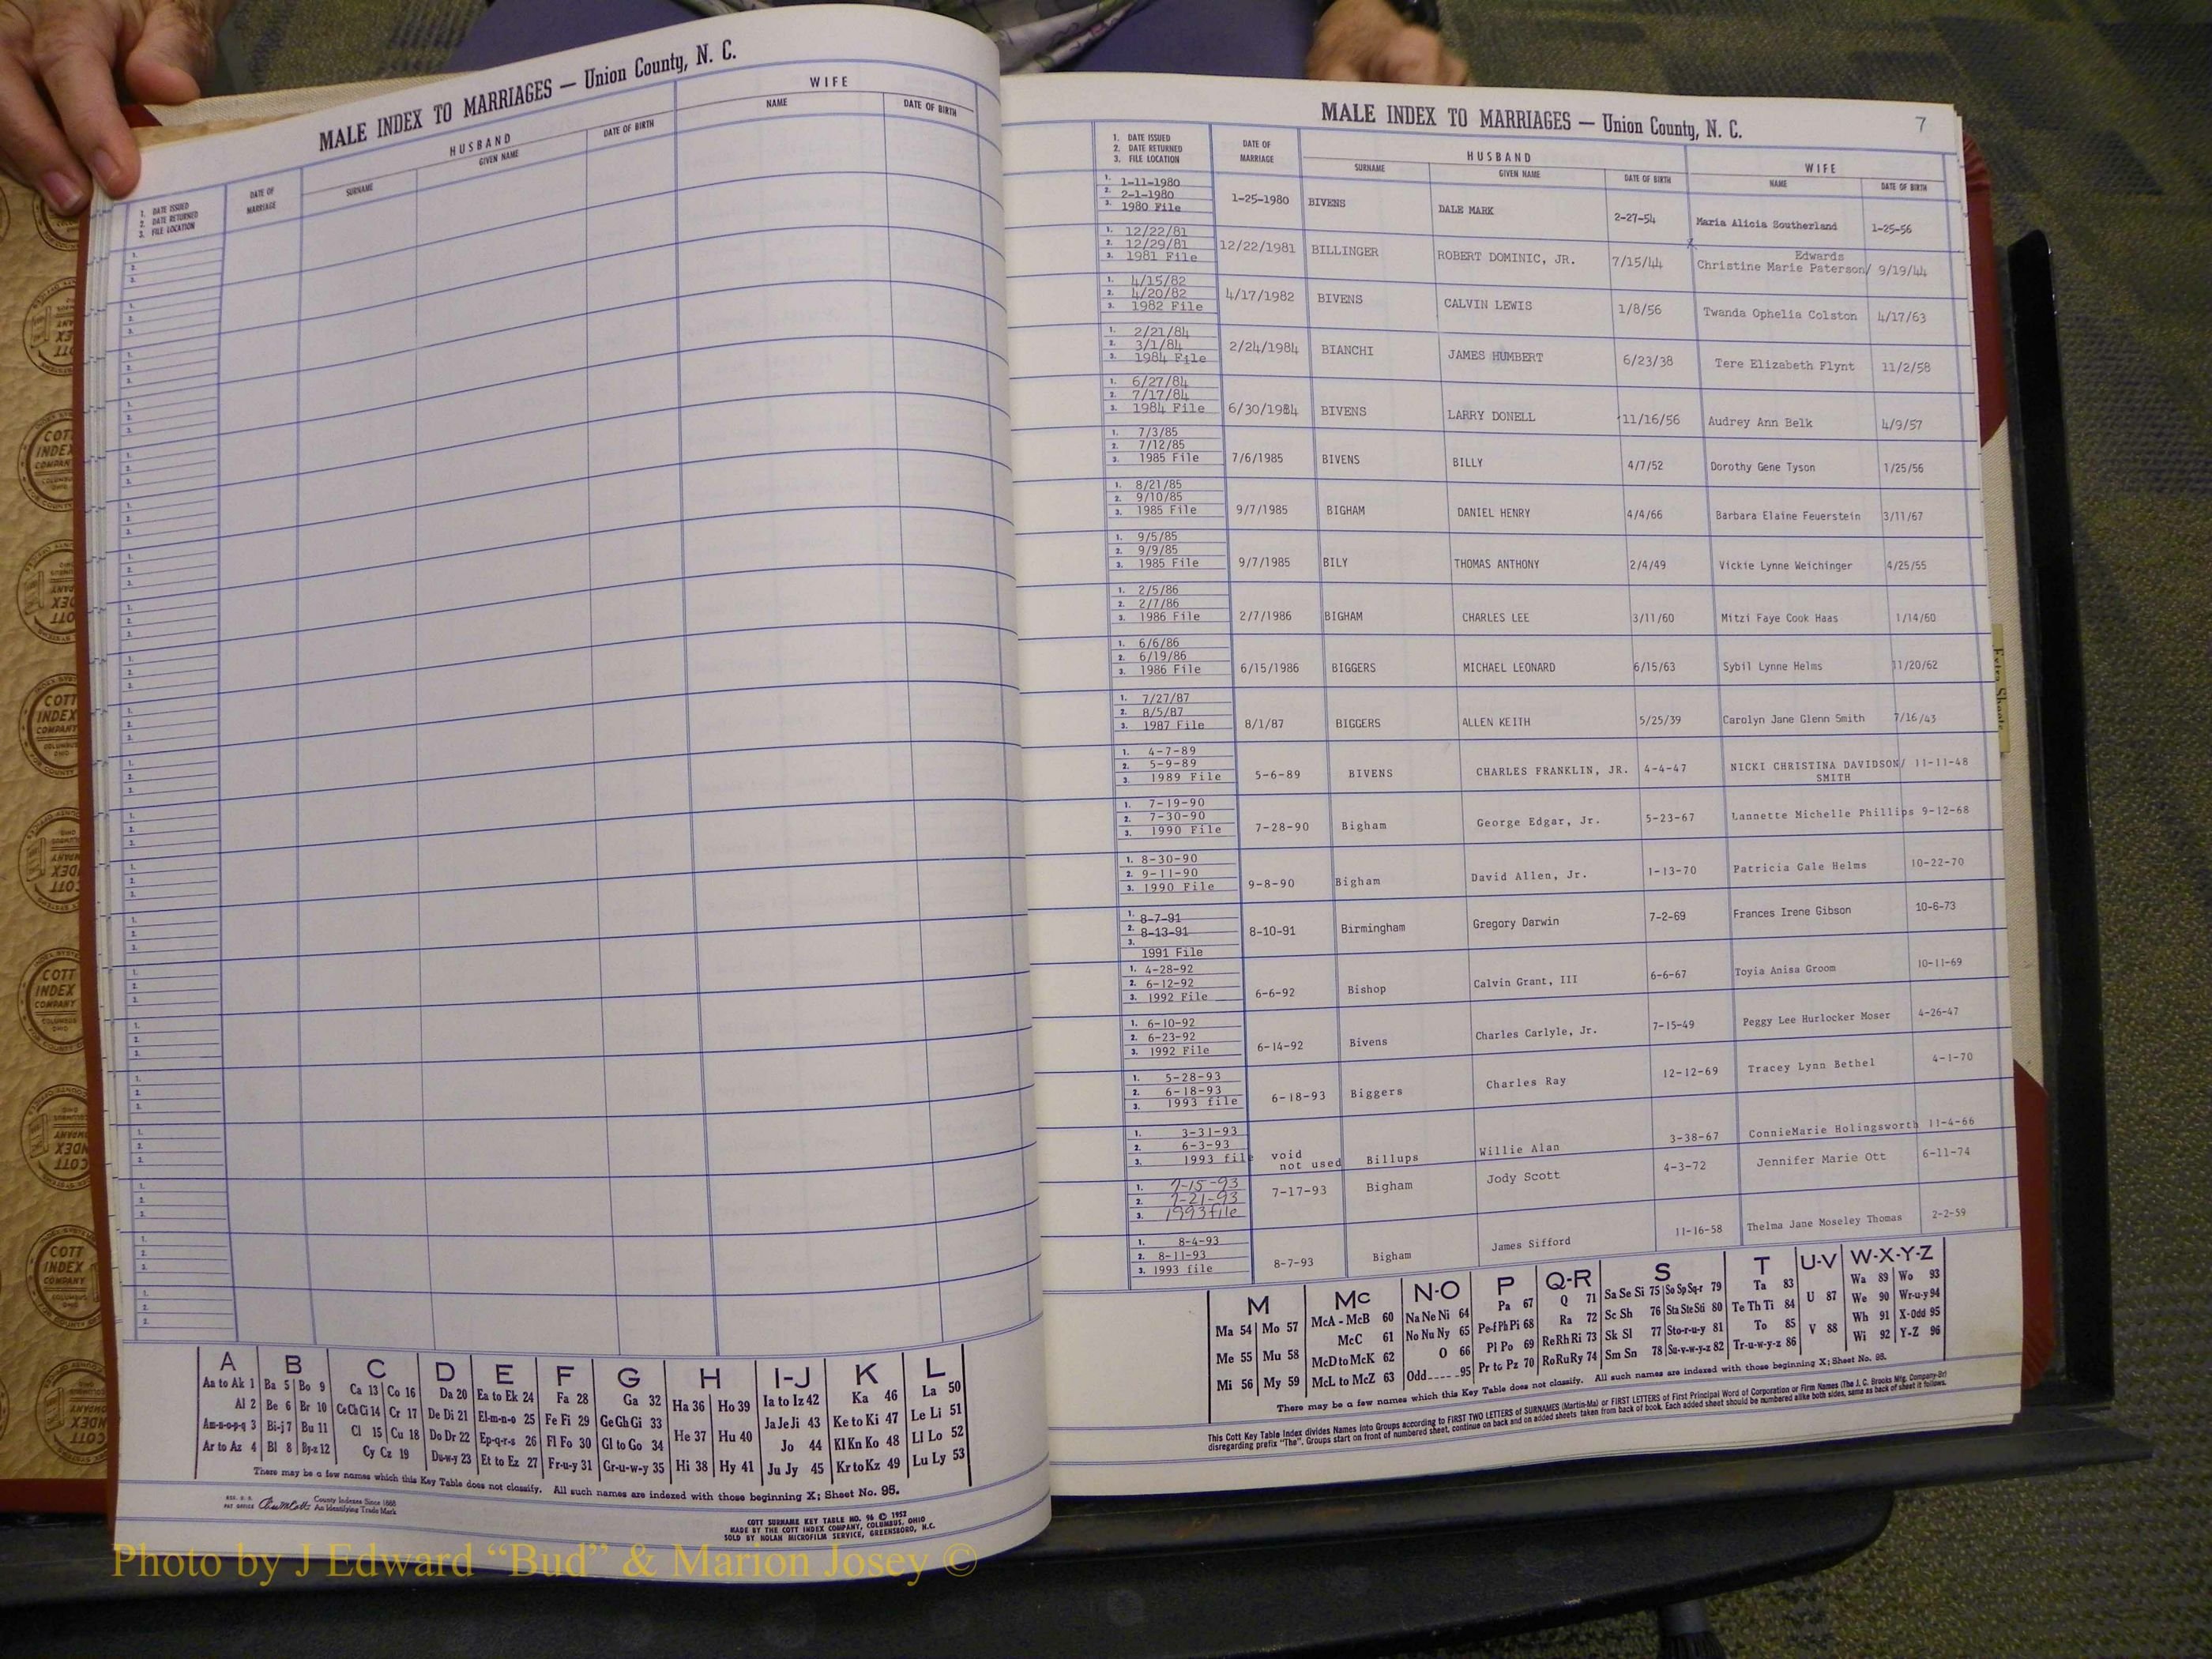 MALE INDEX TO MARRIAGES — Union County, N. C.
1. DATE ISSUED
2. DATE RETURNED
3. FILE LOCATION
DATE OF MARRIAGE
HUSBAND
SURNAME GIVEN NAME DATE OF BIRTH
WIFE
NAME DATE OF BIRTH
A B C D E F G H I-J K L
Aa to Ak 1 Ba 5 Bo 9 Ca 13 Co 16 Da 20 Ea to Ek 24 Fa 28 Ga 32 Ha 36 Ho 39 Ia to Iz 42 Ka 46 La 50
Al 2 Be 6 Br 10 Ce Ch Ci 14 Cr 17 De Di 21 El-m-n-o 25 Fe Fi 29 Ge Gh Gi 33 Ja Je Ji 43 Ke to Ki 47 Le Li 51
Am-n-o-p-q 3 Bi-j 7 Bu 11 Cl 15 Cu 18 Do Dr 22 Ep-q-r-s 26 Fl Fo 30 Gl to Go 34 He 37 Hu 40 Jo 44 Kl Kn Ko 48 Ll Lo 52
Ar to Az 4 Bl 8 By-z 12 Cy Cz 19 Du-w-y 23 Et to Ez 27 Fr-u-y 31 Gr-u-w-y 35 Hi 38 Hy 41 Ju Jy 45 Kr to Kz 49 Lu Ly 53
There may be a few names which this Key Table does not classify. All such names are indexed with those beginning X; Sheet No. 95.
County Indexes Since 1888
An Identifying Trade Mark
COTT SURNAME KEY TABLE NO. 96 © 1952
MADE BY THE COTT INDEX COMPANY, COLUMBUS, OHIO
SOLD BY NOLAN MICROFILM SERVICE, GREENSBORO, N.C.
MALE INDEX TO MARRIAGES — Union County, N. C.
7
1. DATE ISSUED
2. DATE RETURNED
3. FILE LOCATION
DATE OF MARRIAGE
HUSBAND
SURNAME GIVEN NAME DATE OF BIRTH
WIFE
NAME DATE OF BIRTH
1. 1-11-1980
2. 2-1-1980
3. 1980 File
1-25-1980 BIVENS DALE MARK 2-27-54 Maria Alicia Southerland 1-25-56
1. 12/22/81
2. 12/29/81
3. 1981 File
12/22/1981 BILLINGER ROBERT DOMINIC, JR. 7/15/44 Christine Marie Paterson/ Edwards 9/19/44
1. 4/15/82
2. 4/20/82
3. 1982 File
4/17/1982 BIVENS CALVIN LEWIS 1/8/56 Twanda Ophelia Colston 4/17/63
1. 2/21/84
2. 3/1/84
3. 1984 File
2/24/1984 BIANCHI JAMES HUMBERT 6/23/38 Tere Elizabeth Flynt 11/2/58
1. 6/27/84
2. 7/17/84
3. 1984 File
6/30/1984 BIVENS LARRY DONELL 11/16/56 Audrey Ann Belk 4/9/57
1. 7/3/85
2. 7/12/85
3. 1985 File
7/6/1985 BIVENS BILLY 4/7/52 Dorothy Gene Tyson 1/25/56
1. 8/21/85
2. 9/10/85
3. 1985 File
9/7/1985 BIGHAM DANIEL HENRY 4/4/66 Barbara Elaine Feuerstein 3/11/67
1. 9/5/85
2. 9/9/85
3. 1985 File
9/7/1985 BILY THOMAS ANTHONY 2/4/49 Vickie Lynne Weichinger 4/25/55
1. 2/5/86
2. 2/7/86
3. 1986 File
2/7/1986 BIGHAM CHARLES LEE 3/11/60 Mitzi Faye Cook Haas 1/14/60
1. 6/6/86
2. 6/19/86
3. 1986 File
6/15/1986 BIGGERS MICHAEL LEONARD 6/15/63 Sybil Lynne Helms 11/20/62
1. 7/27/87
2. 8/5/87
3. 1987 File
8/1/87 BIGGERS ALLEN KEITH 5/25/39 Carolyn Jane Glenn Smith 7/16/43
1. 4-7-89
2. 5-9-89
3. 1989 File
5-6-89 BIVENS CHARLES FRANKLIN, JR. 4-4-47 NICKI CHRISTINA DAVIDSON/ SMITH 11-11-48
1. 7-19-90
2. 7-30-90
3. 1990 File
7-28-90 Bigham George Edgar, Jr. 5-23-67 Lannette Michelle Phillips 9-12-68
1. 8-30-90
2. 9-11-90
3. 1990 File
9-8-90 Bigham David Allen, Jr. 1-13-70 Patricia Gale Helms 10-22-70
1. 8-7-91
2. 8-13-91
3.
1991 File
8-10-91 Birmingham Gregory Darwin 7-2-69 Frances Irene Gibson 10-6-73
1. 4-28-92
2. 6-12-92
3. 1992 File
6-6-92 Bishop Calvin Grant, III 6-6-67 Toyia Anisa Groom 10-11-69
1. 6-10-92
2. 6-23-92
3. 1992 File
6-14-92 Bivens Charles Carlyle, Jr. 7-15-49 Peggy Lee Hurlocker Moser 4-26-47
1. 5-28-93
2. 6-18-93
3. 1993 file
6-18-93 Biggers Charles Ray 12-12-69 Tracey Lynn Bethel 4-1-70
1. 3-31-93
2. 6-3-93
3. 1993 file
void not used Billups Willie Alan 3-38-67 ConnieMarie Holingsworth 11-4-66
1. 7-15-93
2. 7-21-93
3. 1993 file
7-17-93 Bigham Jody Scott 4-3-72 Jennifer Marie Ott 6-11-74
1. 8-4-93
2. 8-11-93
3. 1993 file
8-7-93 Bigham James Sifford 11-16-58 Thelma Jane Moseley Thomas 2-2-59
M Mc N-O P Q-R S T U-V W-X-Y-Z
Ma 54 Mo 57 McA - McB 60 Na Ne Ni 64 Pa 67 Q 71 Sa Se Si 75 So Sp Sq-r 79 Ta 83 U 87 Wa 89 Wo 93
Me 55 Mu 58 McC 61 No Nu Ny 65 Pe-f Ph Pi 68 Ra 72 Sc Sh 76 Sta Ste Sti 80 Te Th Ti 84 We 90 Wr-u-y 94
McD to McK 62 O 66 Pl Po 69 Re Rh Ri 73 Sk Sl 77 Sto-r-u-y 81 To 85 V 88 Wh 91 X-Odd 95
Mi 56 My 59 McL to McZ 63 Odd 95 Pr to Pz 70 Ro Ru Ry 74 Sm Sn 78 Su-v-w-y-z 82 Tr-u-w-y-z 86 Wi 92 Y-Z 96
There may be a few names which this Key Table does not classify. All such names are indexed with those beginning X; Sheet No. 95.
This Cott Key Table Index divides Names into Groups according to FIRST TWO LETTERS of SURNAMES (Martin-Ma) or FIRST LETTERS of First Principal Word of Corporation or Firm Names (The J. C. Brooks Mfg. Company-Br)
disregarding prefix "The". Groups start on front of numbered sheet, continue on back and on added sheets taken from back of book. Each added sheet should be numbered alike both sides, same as back of sheet it follows.
Extra Sheets
COTT INDEX COMPANY
COLUMBUS OHIO
Photo by J Edward “Bud” & Marion Josey ©